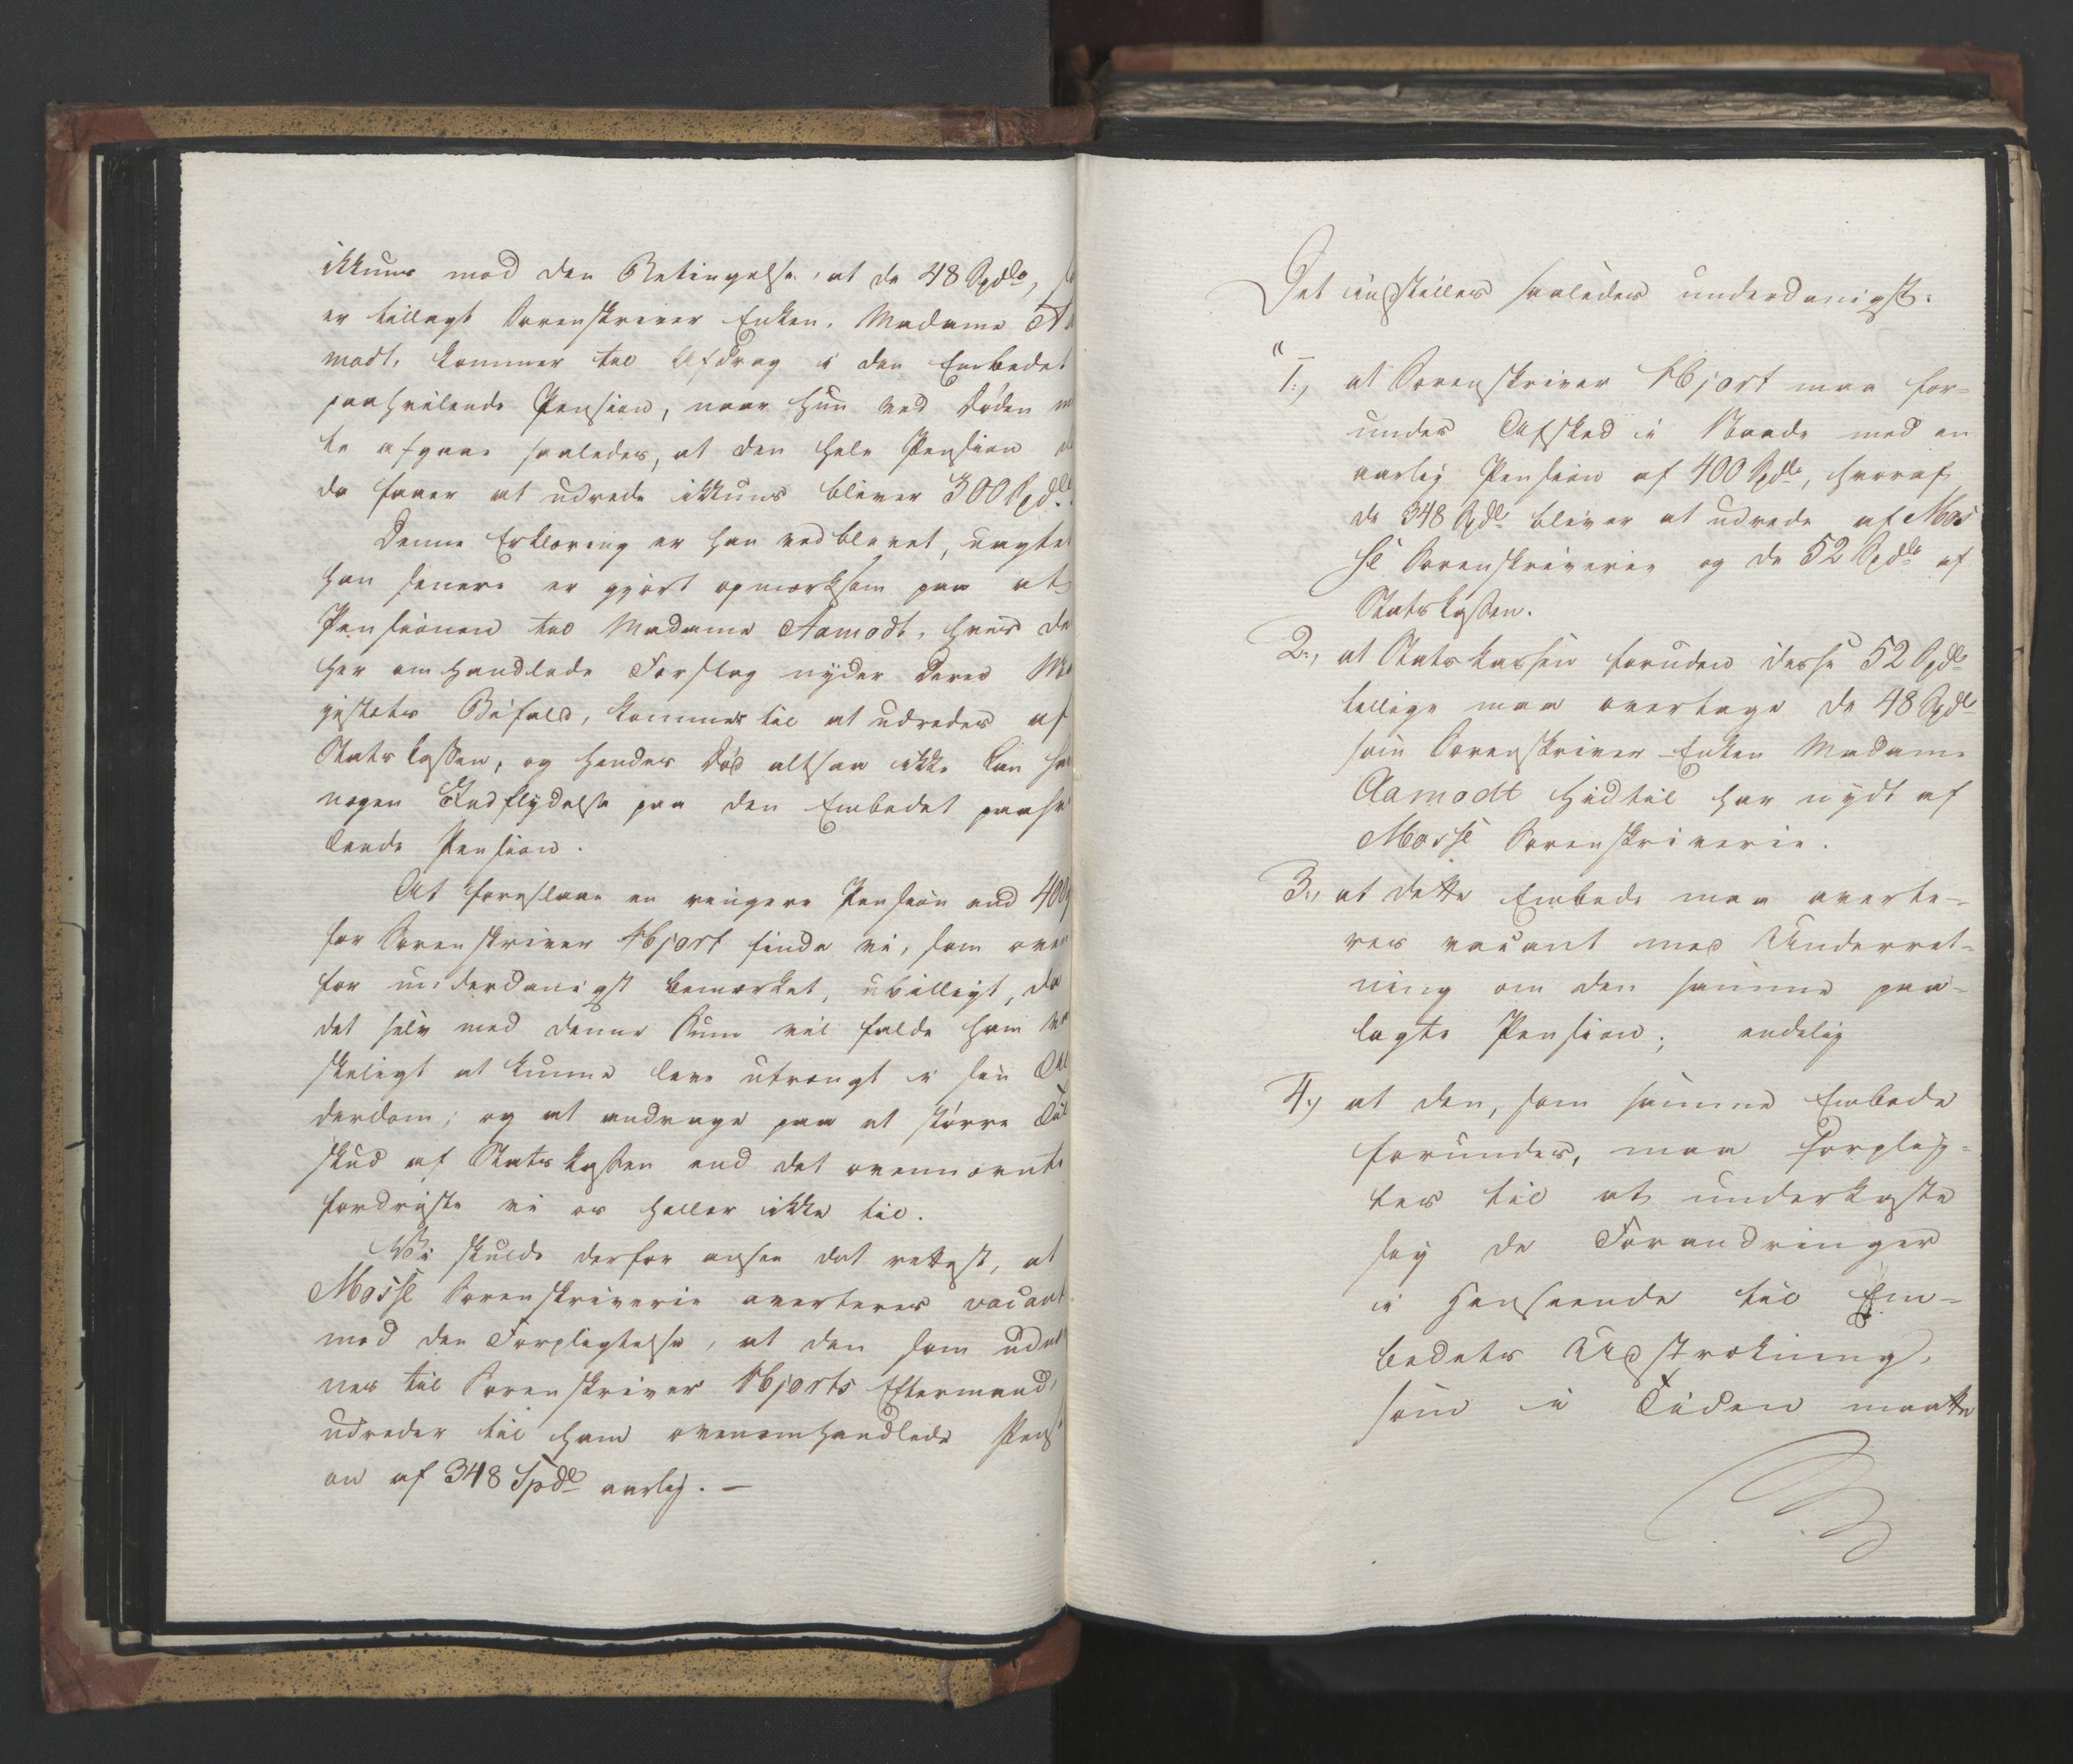 ikkuns mod den Betingelse, at de 48 Spdlr,
er tillagt Sorenskriver Enken, Madame Aa
modt, kommer til Afdrag i den Embedet
paahvilende Pension, naar hun ved Døden m
te afgaae saaledes, at den hele Pension
da faaer at udrede ikkuns bliver 300 Spdlr.
Denne Erklæring er han vedblevet, uagtet
han senere er gjort opmærksom paa at
Pensionen til Madame Aamodt, hvis de
her omhandlede Forslag nyder Deres Ma
jestæts Bifald, kommer til at udredes af
Statskassen, og hendes Død altsaa ikke kan ha
nogen Indflydelse paa den Embedet paahvi
lende Pension.
At foreslaae en ringere Pension end 400
for Sorenskriver Hjort finde vi, som oven
for underdanigst bemærket, ubilligt, da
det selv med denne Sum vil falde ham va
skeligt at kunne leve utrængt i sin Al
derdom; og at andrage paa et større Til
skud af Statskassen end det ovennævnte
fordriste vi os heller ikke til.
Vi skulde derfor ansee det rettest, at
Mosse Sorenskriverie averteres vacant
med den Forpligtelse, at den som udnæv
nes til Sorenskriver Hjorts Eftermand,
udreder til ham ovenomhandlede Pensi
on af 348 Spdlr aarlig. —
Det indstilles saaledes underdanigst:
"1:, at Sorenskriver Hjort maa for=
undes Afsked i Naade med en
aarlig Pension af 400 Spdlr, hvoraf
de 348 Spdlr bliver at udrede af Mos
se Sorenskriverie og de 52 Spdlr af
Statskassen.
2:, at Statskassen foruden disse 52 Spdlr
tillige maa overtage de 48 Spdlr
som Sorenskriver-Enken Madame
Aamodt hidtil har nydt af
Mosse Sorenskriverie.
3:, at dette Embede maa averte=
res vacant med Underret=
ning om den samme paa=
lagte Pension; endelig
4:, at den, som samme Embede
forundes, maa forplig=
tes til at underkaste
sig de Forandringer
i Henseende til Em=
bedets Udstrækning,
som i Tiden maatte